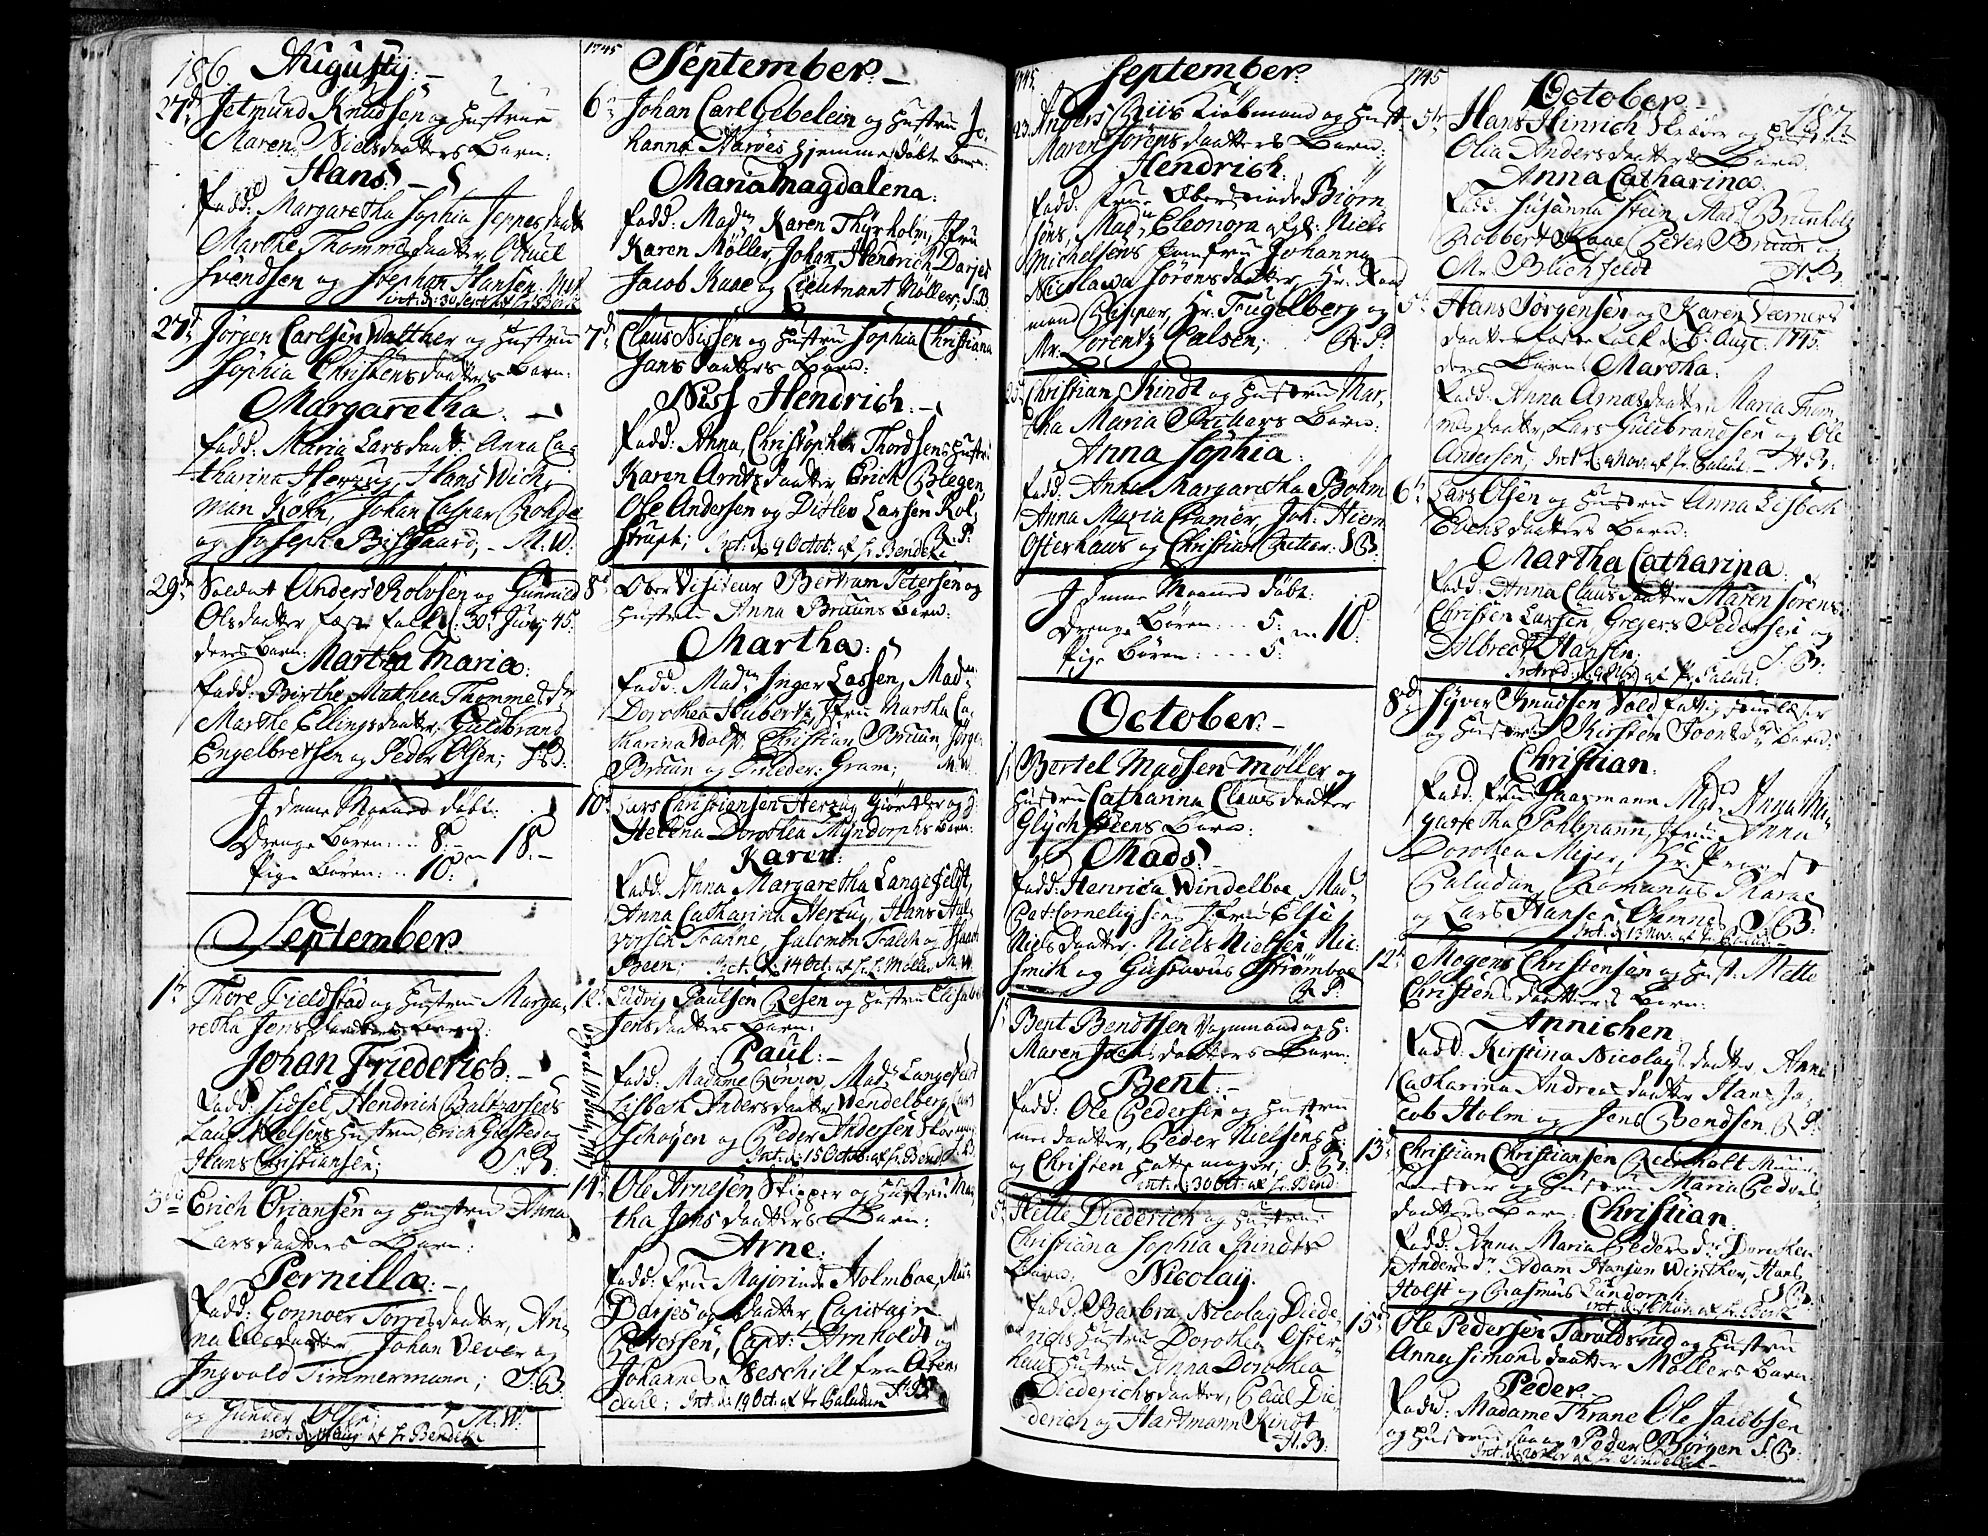 186. Augusty:
27d Jetmund Knudsen og Hustrue
Maren Nielsdaatters Barn:
Hans:
Fadd: Margaretha Sophia Jeppesdaatt
Marthe Thommesdaatter,
Svendsen og Stephan Hansen.
int: d: 30 Sept: af
27d Jørgen Carlsen Walther og Hustru
Sophia Christensdaatters Barn:
Margaretha:
Fadd: Maria Larsdaatt: Anna Ca-
tharina Herzug, Hans Wich-
man Kohn, Johan Caspar Rohde
og Joseph Bisgaard, M:W:
29d Soldat Anders Rolvsen og Gunnild
Olsdaatter fæste folk d: 30t Juny 45.
deres Barn: Martha Maria:
Fadd: Birthe Mathea Thommesd:
Marthe Ellingsdaatter, Guldbrand
Engelbretsen og Peder Olsen;
I denne Maaned døbt:
Drenge Børen: 8:
Pige Børen: 10: 18:
September
1t Thore Fieldstad og Hustru Marga-
retha Jensdaatters Barn:
Johan Friederich:
Fadd: Sidsel, Hendrich Baltzarsens
Hustru Erich Giefsted og
Hans Christiansen; S:B:
3d Erich Ørjansen og Hustru Anna
Larsdaatters Barn:
Pernilla:
Fadd: Gonnoer Torresdaatter, An-
na Olesdaatter, Johan Vever og
Ingvold Timmermann; S:B:
og Gunder Olsen; M:W:
int: af Hr Bendeke
1745 September
6t Johan Carl Gebelein og Hustru Jo-
hanna Narves hjemmedøbt Barn:
Maria Magdalena:
Fadd: Madm Karen Thyrholm, Jfru
Karen Møller, Johan Hendrich Darjes
Jacob Kaae og Lieutnant Møller; S:B
7d Claus Nissen og Hustru Sophia Christiana
Jansdaatters Barn:
Niss Hendrich:
Fadd: Anna, Christopher Thordsens Hustru
Karen Arntzdaatter, Erich Blegen,
Ole Andersen og Ditlev Larsen Rol-
strup; Int: d: 9 Octob: af Hr Bendeke R:P:
8d Ober Visiteur Bertram Petersen og
Hustrue Anna Bruuns Barn:
Martha:
Fadd: Madm Inger Lassen, Madm
Dorothea Hubertz, Jfru Martha Ca-
tharina Wolff, Christian Bruun, Jørgen
Bruun og Frieder: Gram; M:W:
10d Lars Christiansen Herzug Giørtler og H:
Helena Dorothea Myndorphs Barn:
Karen:
Fadd: Anna Margaretha Langefeldt,
Anna Catharina Herzug, Hans Hal-
vorsen Trahne, Salomon Trahne og
Been; Int: d: 14 Oct: af Hr Møller M:W:
12t Ludvig Paulsen Resen og Hustru Elisabet
Jensdaatters Barn:
Paul:
Fadd: Madame Rønnow, Madm Langefeldt
Lisbeth Andersdaatter Wendelberg, Lars
Schøyen og Peder Andersen Skomag:
Int: d: 15 Octob: af Hr Bend: S:B:
14d Ole Arnesen Skipper og Hustru Mar-
tha Jensdaatters Barn:
Arne:
Fadd: Fru Majorinde Holmboe, Mari
Darjes og daatter, Captain
Petersen, Capt: Arnholdt og
Johannes Neschill fra Aren-
dahl; Int: d: 19 Oct: af Hr Paludan
1745. September:
23. Anders Riis Kiøbmand og Hust:
Maren Sørensdaatters Barn:
Hendrich:
Fadd: Frue Oberstinde Biørn
sens, Madm Eleonora Niels
Michelsens, Jomfru Johanna
Nicolawa Sørensdaatter, Hr: Raad
mand Hr: Fugelberg og
Mr. Lorentz Calsen; R:P:
23d Christian Kindt og Hustru Mar-
tha Maria Richters Barn:
Anna Sophia:
Fadd: Anna Margaretha Bøhm
Anna Maria Cramer, Joh: Hierm
Osterhaus og Christian Richter. S:B:
I denne Maaned døbt:
Drenge Børen: 5:
Pige Børen: 5: 10:
October
1t Bertel Madsen Møller og
Hustru Catharina Clausdaatter
Glychsteens Barn:
Mads:
Fadd: Henrica Windelboe, Madm
Cornelijsen, Jfru Else
Nielsdaatter, Niels Nielsen Nic:
Smith og Gustavus Strømboe
R:P:
1t Bent Bendtsen Vognmand og H:
Maren Jachensdaatters Barn:
Bent:
Fadd: Ole Pedersen og Hustru
daatter, Peder Nielsens H:
og Christen Hattemager; S:B:
int: d: 30 Oct: af Hr Bend:
Helle Diederich og Hustrue
Christiana Sophia Kindts
Barn: Nicolay:
Fadd: Barbra, Nicolay Diede-
richs Hustru, Dorothea Oster-
haus Hustru, Anna Dorothea
Diederichsdaatter, Paul Die-
derich og Hartmann Kindt
H:B:
1745 October: 187.
5te Hans Hinrich Skræder og Hustru
Olia Andersdaatters Barn:
Anna Catharina:
Fadd: Susanna Stein, Madm Brunholt
Robbert Kaae, Peter Bruun og
Mr Blichfeldt H:B:
5t Hans Jørgensen og Karen Værners
daatter fæste folk d: 6: Augt: 1745.
deres Barn: Martha:
Fadd: Anna Arnesdaatter, Maria Thom-
mesdaatter, Lars Guldbrandsen og Ole
Andersen; Int: d: 9 Nov: af Hr Palud: H:B:
6t Lars Olsen og Hustru Anna Lisbeth
Evensdaatters Barn:
Martha Catharina:
Fadd: Anna Clausdaatter, Maren Sørens
Christen Larsen, Gregers Pedersen og
Albrect Hansen: S:B:
Introd: af Hr Palud:
8de Syver Knudsen Vold fattig
og Hustru Kirsten Toensdr Barn:
Christian:
Fadd: Fru Haagmann, Madm Anna Mar-
garetha Pohlmann, Jfru Anna
Dorothea Meyer, Hr: Provst
Paludan, Romanus Skarae
og Lars Hansen S:B:
Int: d: 13 Nov: af Hr Palud:
12t Mogens Christensen og Hust: Mette
Christensdaatters Barn:
Annichen:
Fadd: Kirstina Nicolaysdaatter, Anna
Catharina Andreasdaatter, Hans Ja-
cob Holm og Jens Svendsen. R:P:
13d Christian Christiansen Reinholt Muur-
mester og Hustru Maria Peders
daatters Barn: Christian:
Fadd: Anna Maria Pedersdr Dorothea
Andersdr Adam Hansen Winther, Hans
Holst og Rasmus Lundorph. S:B:
int: d: Nov: af Hr Borch
15d Ole Pedersen Taraldsrud og Hustru
Anna Simonsdaatter Møllers Barn
Peder:
Fadd: Madame Thrane, Ole Jacobsen
og Hustru samt Peder Børgen S:B:
Int: af Hr Vindelboe